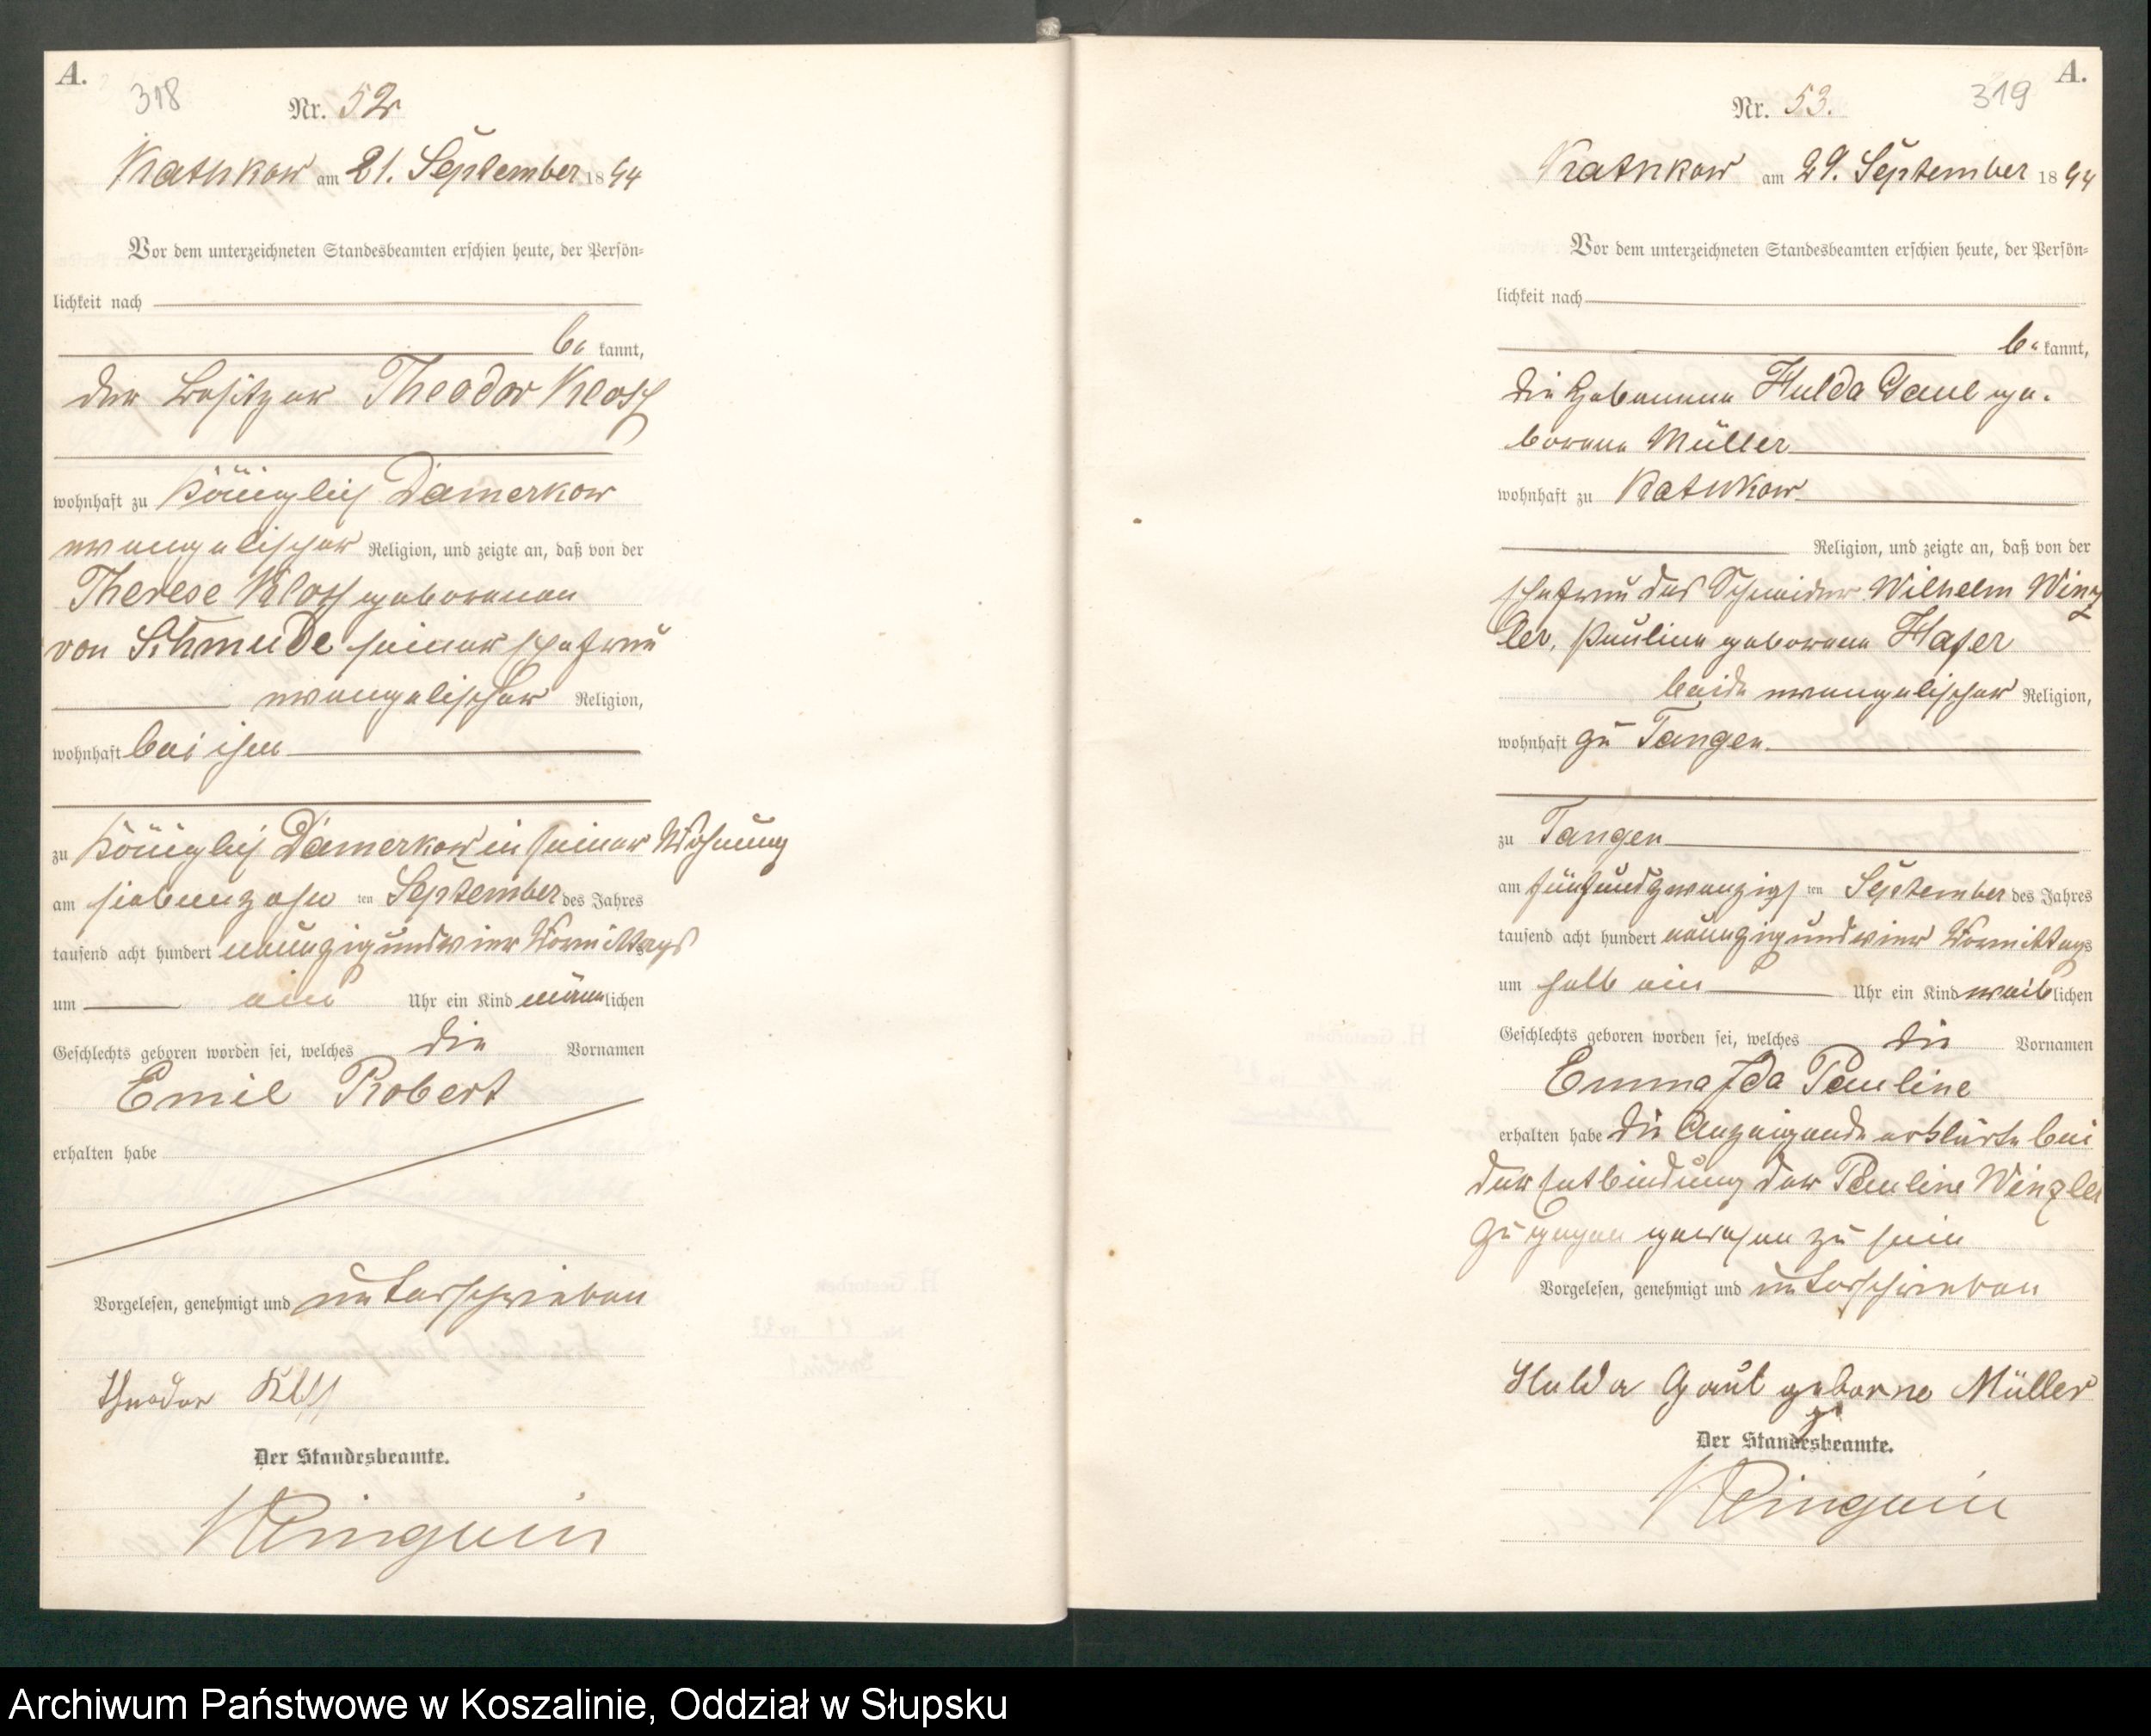 A.
318
Nr. 52
Kathkow am 21. September 1894
Vor dem unterzeichneten Standesbeamten erschien heute, der Persön-
lichkeit nach
be kannt,
der Besitzer Theodor Kloß
wohnhaft zu Königlich Damerkow
evangelischer Religion, und zeigte an, daß von der
Therese Kloß geborenen
von Schmude seiner Ehefrau
evangelischer Religion,
wohnhaft bei ihm
zu Königlich Damerkow in seiner Wohnung
am siebenzehn ten September des Jahres
tausend acht hundert neunzig und vier Vormittags
um ein Uhr ein Kind männlichen
Geschlechts geboren worden sei, welches die Vornamen
Emil Robert
erhalten habe
Vorgelesen, genehmigt und unterschrieben
Theodor Kloß
Der Standesbeamte.
A.
319
Nr. 53.
Kathkow am 29. September 1894
Vor dem unterzeichneten Standesbeamten erschien heute, der Persön-
lichkeit nach
be kannt,
die Hebamme Hulda Gaul ge-
borene Müller
wohnhaft zu Kathkow
Religion, und zeigte an, daß von der
Ehefrau des Schneider Wilhelm Winz
ler, Pauline geborene Hafer
beide evangelischer Religion,
wohnhaft zu Tangen
zu Tangen
am fünfundzwanzigs ten September des Jahres
tausend acht hundert neunzig und vier Vormittags
um halb ein Uhr ein Kind weiblichen
Geschlechts geboren worden sei, welches die Vornamen
Emma Ida Pauline
erhalten habe die Anzeigende erklärte bei
der Entbindung der Pauline Winzler
zugegen gewesen zu sein
Vorgelesen, genehmigt und unterschrieben
Hulda Gaul geborne Müller
Der Standesbeamte.
Archiwum Państwowe w Koszalinie, Oddział w Słupsku